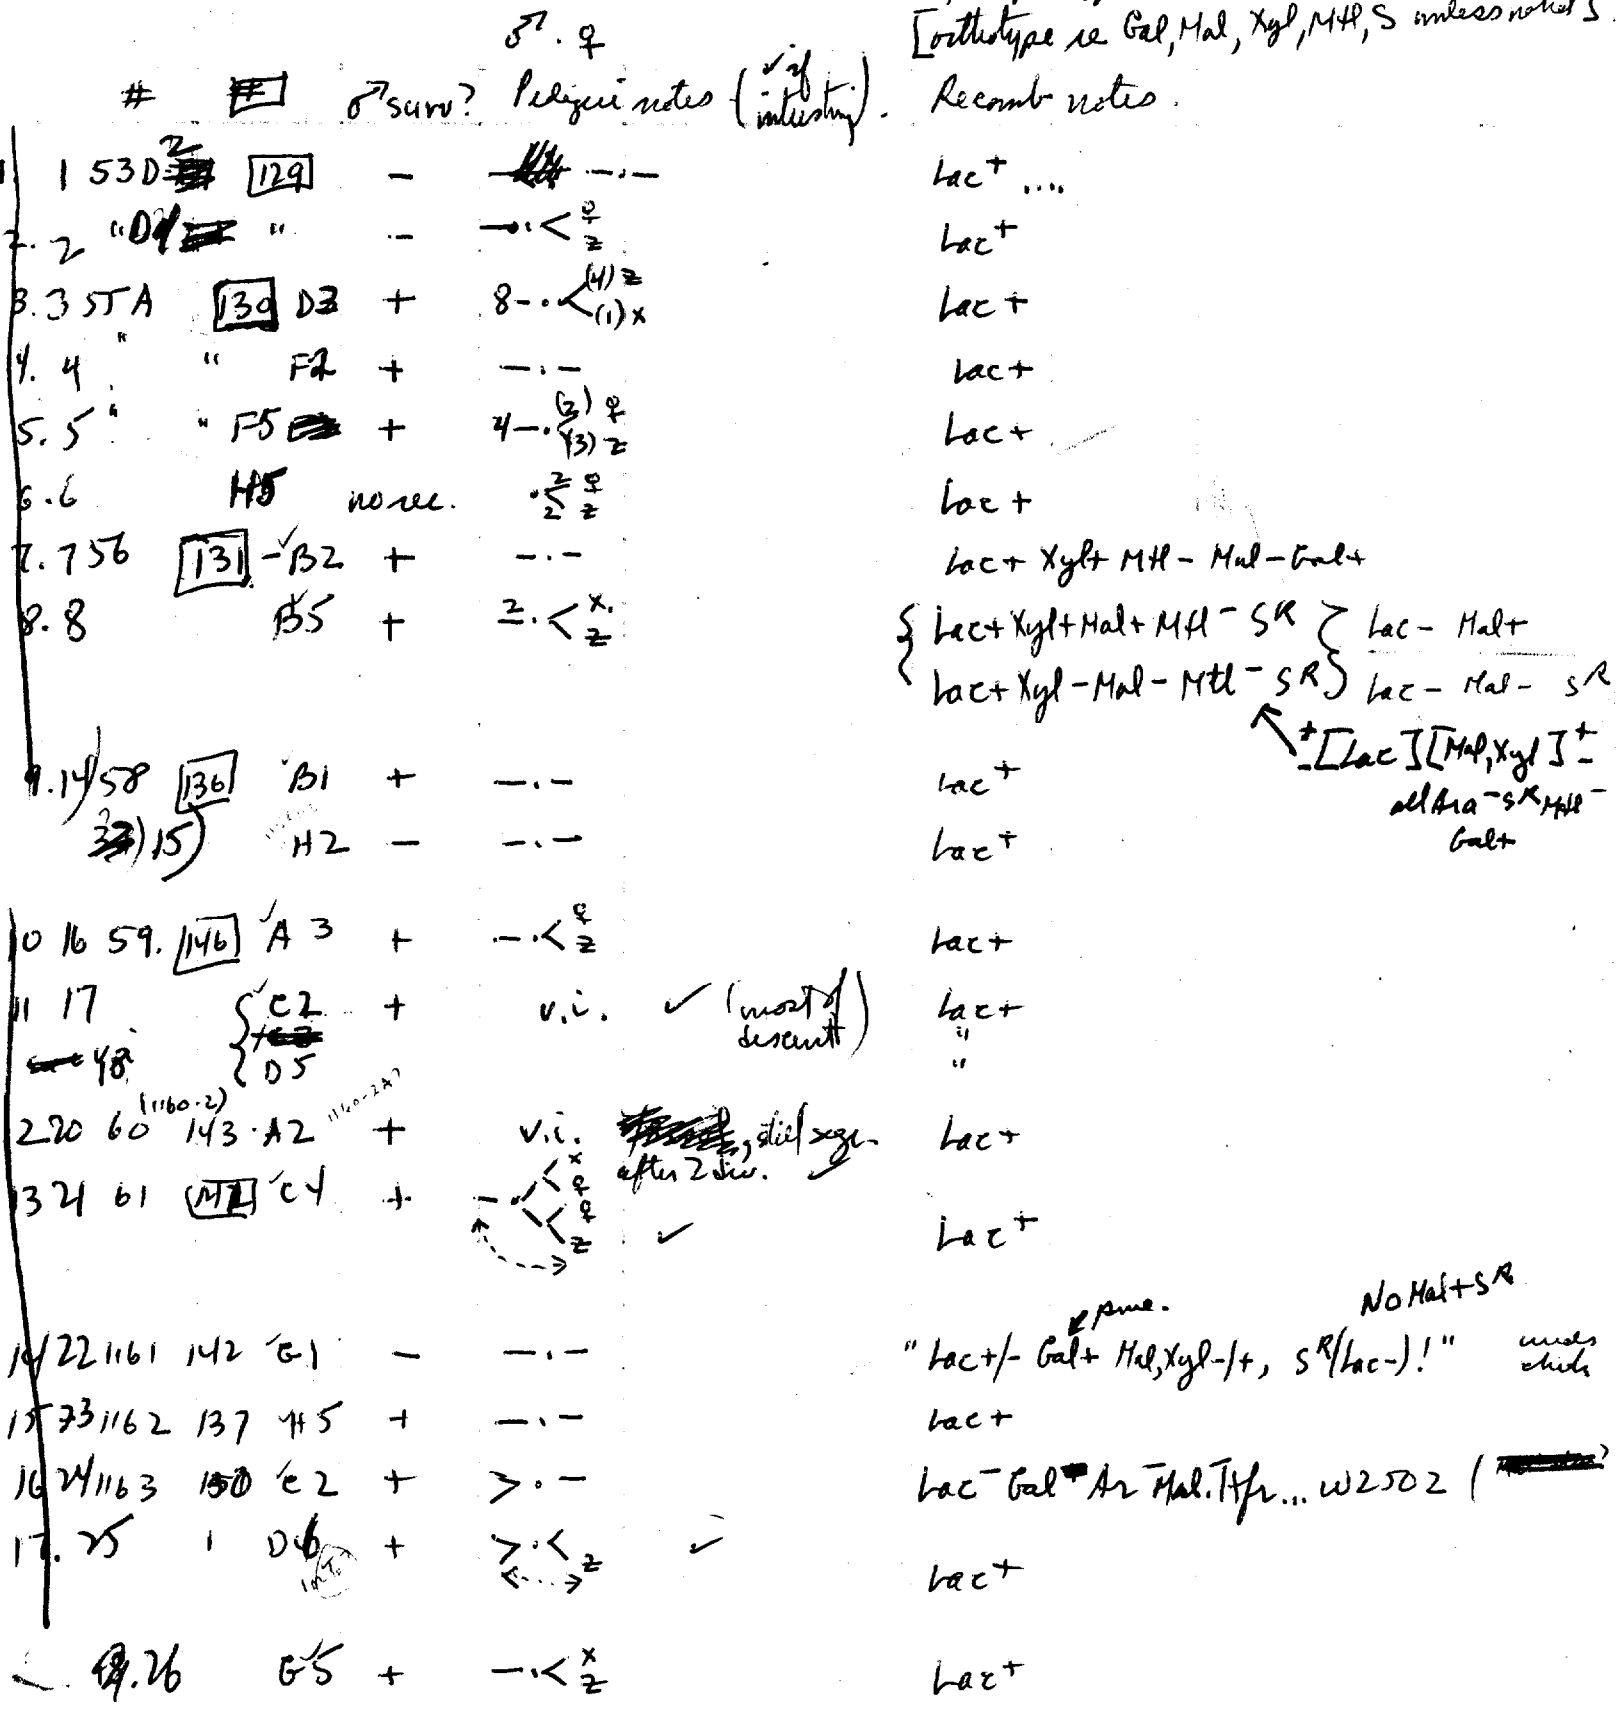 ♂ . ♀ [orthotype ie Gal, Mal, Xyl, Mtl, S unless noted].
# # ♂ surv? Pedigree notes (✓ if interesting). Recomb notes.
1. 1 53D2 129 - -.- Lac+ ....
2. 2 "D4 " - -.< ♀ z Lac+
3. 3 55A 130 D3 + 8-.< (4) z (1) x Lac+
4. 4 " " F2 + -.- Lac+
5. 5 " " F5 + 4-.< (2) ♀ (3) z Lac+
6. 6 H5 no rec. .< 2 ♀ 2 z Lac+
7. 7 56 131 -✓B2 + -.- Lac+ Xyl+ Mtl- Mal- Gal+
8. 8 ✓B5 + 2.< x. z { Lac+ Xyl+ Mal+ Mtl- SR } Lac- Mal+
Lac+ Xyl- Mal- Mtl- SR } Lac- Mal- SR
+-[Lac][Mal, Xyl]+-
9. 14) 58 136 ✓B1 + -.- Lac+ all Ara- SR Mtl-
15) H2 - -.- Lac+ Gal+
10 16 59. 146 ✓A3 + -.< ♀ z Lac+
11 17 { ✓C2 + v.i. ✓ (most of descent) Lac+
"
48 D5 "
(1160-2) 1160-2A?
2 20 60 143 . A2 + v.i. , still segr. Lac+
after 2 div. ✓
13 21 61 ✓C4 + - .< x ♀ ♀ z ✓ Lac+
same. No Mal+ SR
14 22 1161 142 ✓G1 - -.- "Lac+/- Gal+ Mal, Xyl-/+, SR/Lac-)!" needs check
15 23 1162 137 H5 + -.- Lac+
16 24 1163 150 ✓C2 + >.- Lac- Gal- Ar- Mal- Hfr... W2502 (
17. 25 D6 + >.< z ✓ Lac+
26 G✓5 + -.< x z Lac+